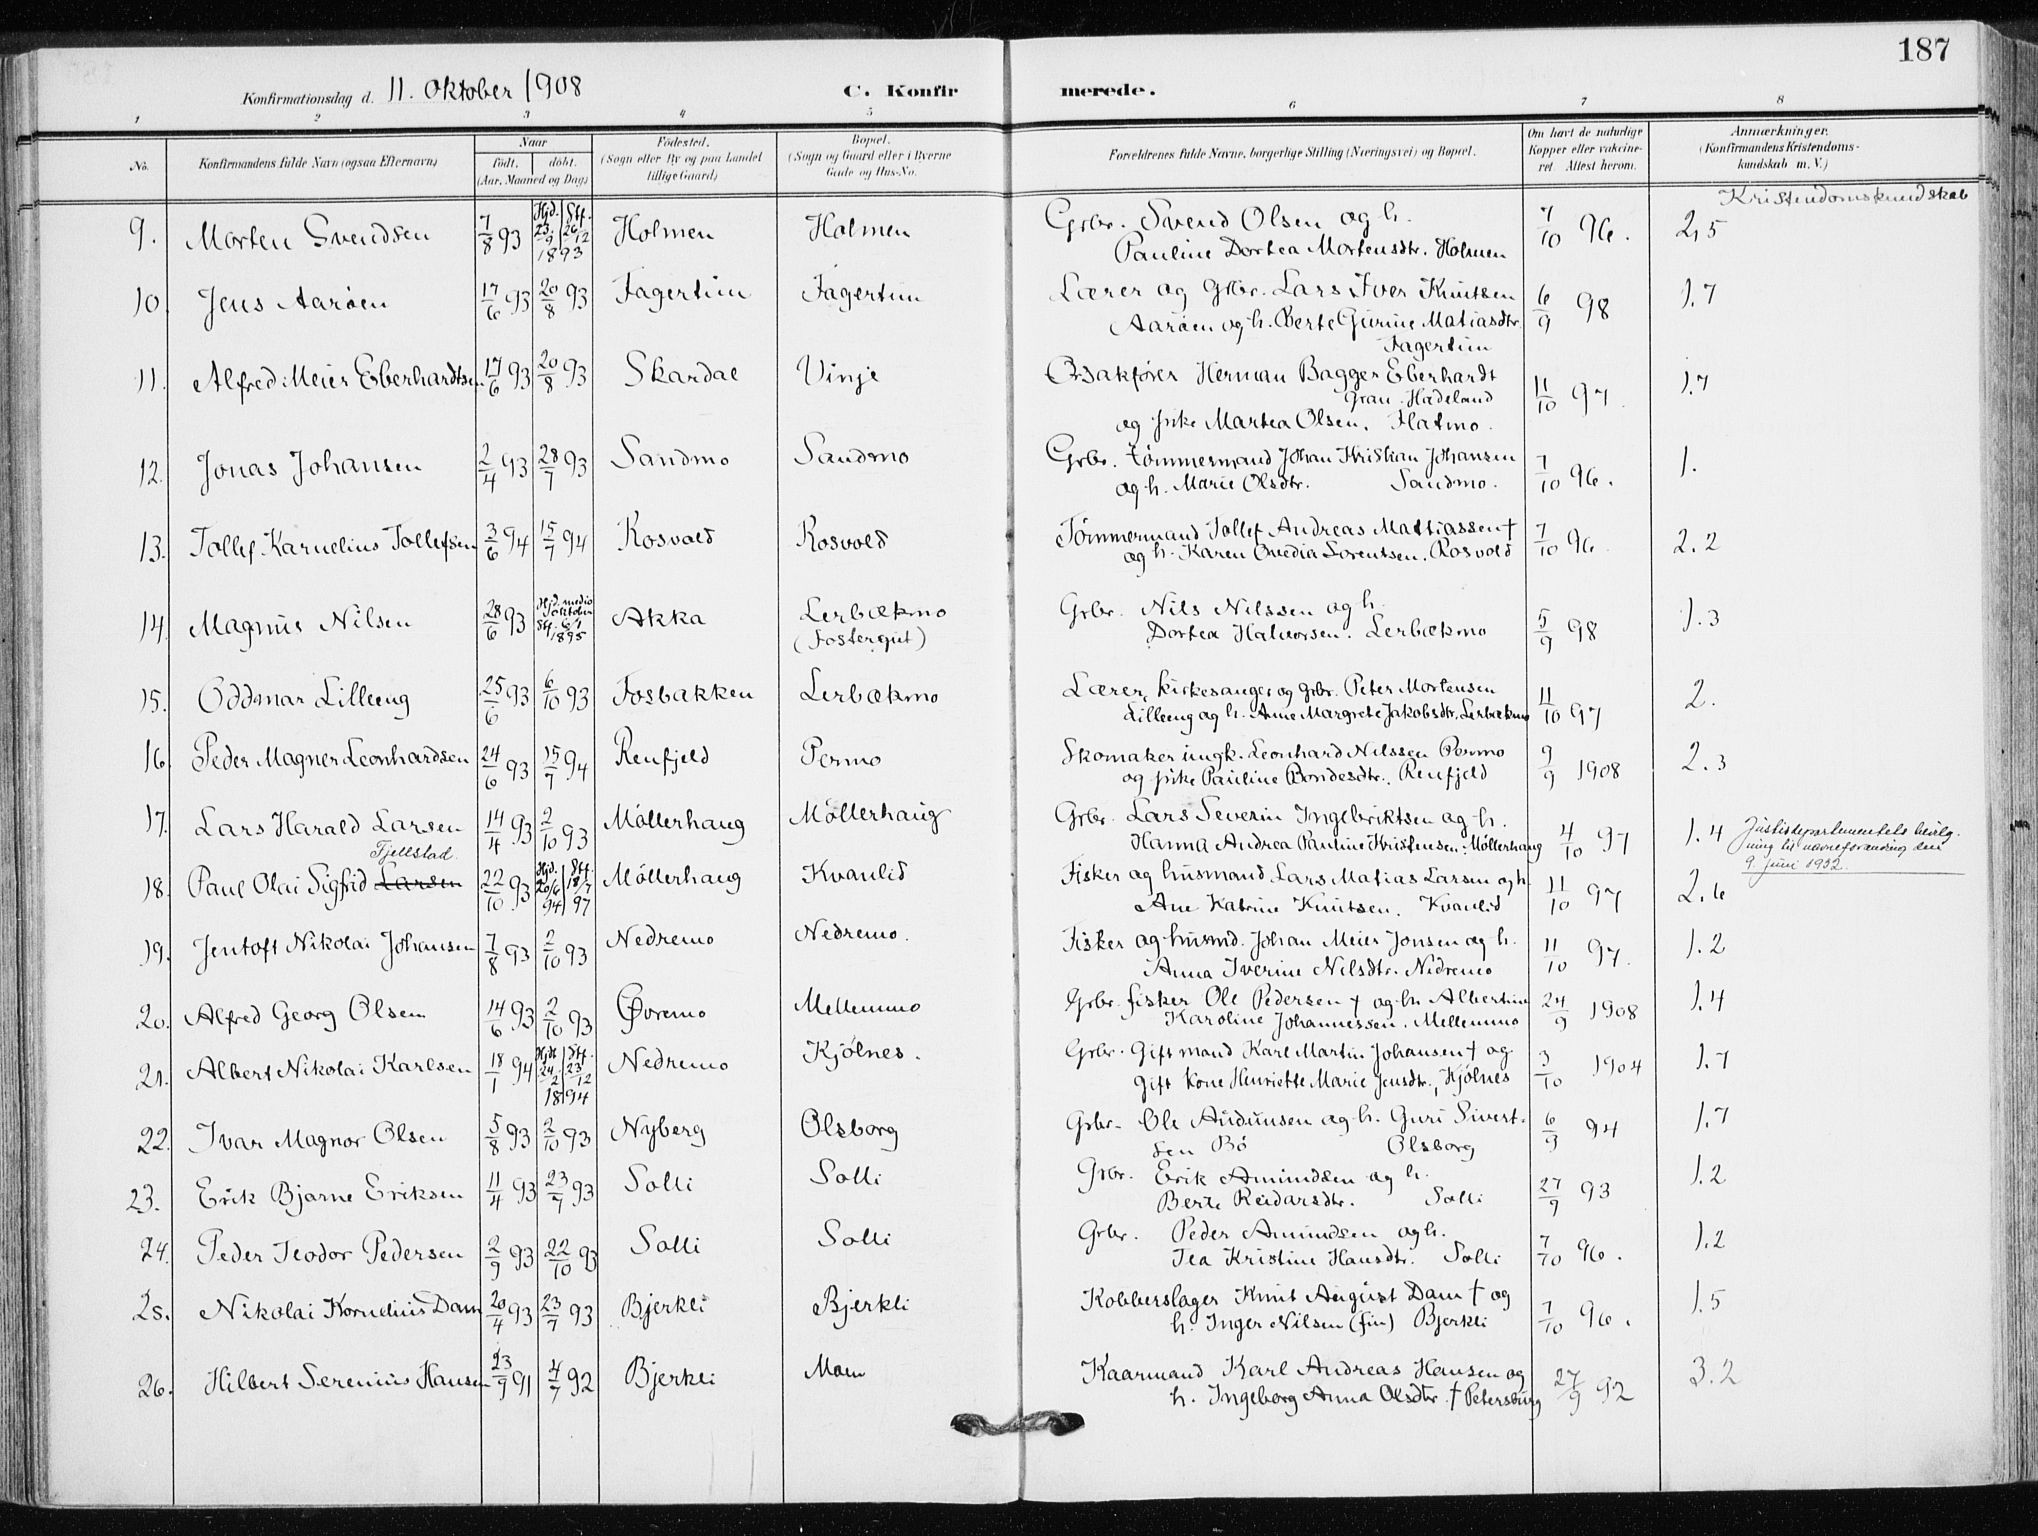 187
Konfirmationsdag d. 11. Oktober 1908
C. Konfirmerede.
1 2 3 4 5 6 7 8
No. Konfirmandens fulde Navn (ogsaa Efternavn) Naar født. døbt. (Aar, Maaned og Dag) Fødested. (Sogn eller By og paa Landet tillige Gaard) Bopæl. (Sogn og Gaard eller i Byerne Gade og Hus-No. Forældrenes fulde Navne, borgerlige Stilling (Næringsvei) og Bopæl. Om havt de naturlige Kopper eller vakcineret. Attest herom. Anmærkninger. (Konfirmandens Kristendomskundskab m. V.)
Kristendomskundskab
9. Morten Svendsen 7/8 93 Hjd. 23/9 Stf. 26/12 1893 Holmen Holmen Grbr. Svend Olsen og h. 7/10 96. 2,5
Pauline Dortea Mortensdtr. Holmen
10. Jens Aarøen 17/6 93 20/8 93 Fagertun Fagertun Lærer og Grbr. Lars Iver Knutsen 6/9 98 1.7
Aarøen og h. Berte Gurine Matiasdtr.
Fagertun
11. Alfred Meier Eberhardtsen 17/6 93 20/8 93 Skardal Vinje Ordakfører Herman Bagger Eberhardt 11/10 97. 1.7
Gran Hadeland
og pike Martea Olsen. Flatmo.
12. Jonas Johansen 2/4 93 28/7 93 Sandmo Sandmo Grbr. tømmermand Johan Kristian Johansen 7/10 96. 1.
og h. Marie Olsdtr. Sandmo.
13. Tollef Karnelius Tollefsen 3/6 94 15/7 94 Rosvold Rosvold Tømmermand Tollef Andreas Mattiassen † 7/10 96. 2.2
og h. Karen Ovedia Sorentsen. Rosvold
14. Magnus Nilsen 28/6 93 Hjd. medio oktober Stf. 6/1 1895 Akka Lerbækmo (Fostergut) Grbr. Nils Nilssen og h. 5/9 98 1.3
Dortea Halvorsen. Lerbækmo
15. Oddmar Lilleeng 25/6 93 6/10 93 Fosbakken Lerbækmo Lærer, kirkesanger og Grbr. Peter Mortensen 11/10 97 2.
Lilleeng og h. Anne Margrete Jakobsdtr. Lerbækmo
16. Peder Magner Leonhardsen 24/6 93 15/7 94 Renfjeld Permo Skomaker ungk. Leonhard Nilssen Permo 9/9 1908 2.3
og pike Pauline Bondesdtr. Renfjeld
17. Lars Harald Larsen 14/4 93 2/10 93 Møllerhaug Møllerhaug Grbr. Lars Severin Ingebriktsen og h. 4/10 97 1.4
Hanna Andrea Pauline Kristensen. Møllerhaug
Fjellstad.
18. Paul Olai Sigfrid Larsen 22/10 93 Hjd. 20/6 94 Stf. 18/7 97 Møllerhaug Kvanlid Fisker og husmand Lars Matias Larsen og h. 11/10 97 2.6 Justisdepartementets bevilgning til navneforandring den 9. juni 1932.
Ane Katrine Knutsen. Kvanlid
19. Jentoft Nikolai Johansen 7/8 93 2/10 93 Nedremo Nedremo. Fisker og husmd. Johan Meier Jonsen og h. 11/10 97. 1.2
Anna Iverine Nilsdtr. Nedremo
20. Alfred Georg Olsen 14/6 93 2/10 93 Øvremo Mellemmo Grbr. fisker Ole Pedersen † og h. Albertine 24/9 1908 1.4
Karoline Johannessen. Mellemmo
21. Albert Nikolai Karlsen 18/1 94 Hjd. 24/2 Stf. 23/12 1894 Nedremo Kjølnes. Grbr. Gift mand Karl Martin Johansen † og 3/10 1904 1.7
gift kone Henriette Marie Jensdtr., Kjølnes
22. Ivar Magnor Olsen 5/8 93 2/10 93 Nyberg Olsborg Grbr. Ole Audunsen og h. Guri Sivert- 6/9 94 1.7
sen Bø Olsborg
23. Erik Bjarne Eriksen 11/4 93 23/7 93 Solli Solli Grbr. Erik Amundsen og h. 27/9 93 1.2
Berte Reidarsdtr. Solli
24. Peder Teodor Pedersen 2/9 93 22/10 93 Solli Solli Grbr. Peder Amundsen og h. 7/10 96. 1.2
Tea Kristine Hansdtr. Solli
25. Nikolai Kornelius Dam 20/4 93 23/7 93 Bjerkli Bjerkli Kobberslager Knut August Dam † og 7/10 96. 1.5
h. Inger Nilsen (fin) Bjerkli
26. Hilbert Serenius Hansen 23/9 91 4/7 92 Bjerkli Moen Kaarmand Karl Andreas Hansen og 27/9 92 3.2
h. Ingeborg Anna Olsdtr. † Petersburg